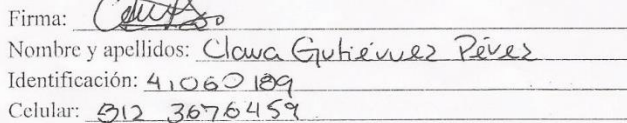 Firma:
Nombre y apellidos: Clara Gutiérrez Pérez
Identificación: 41060189
Celular: 312 3676459